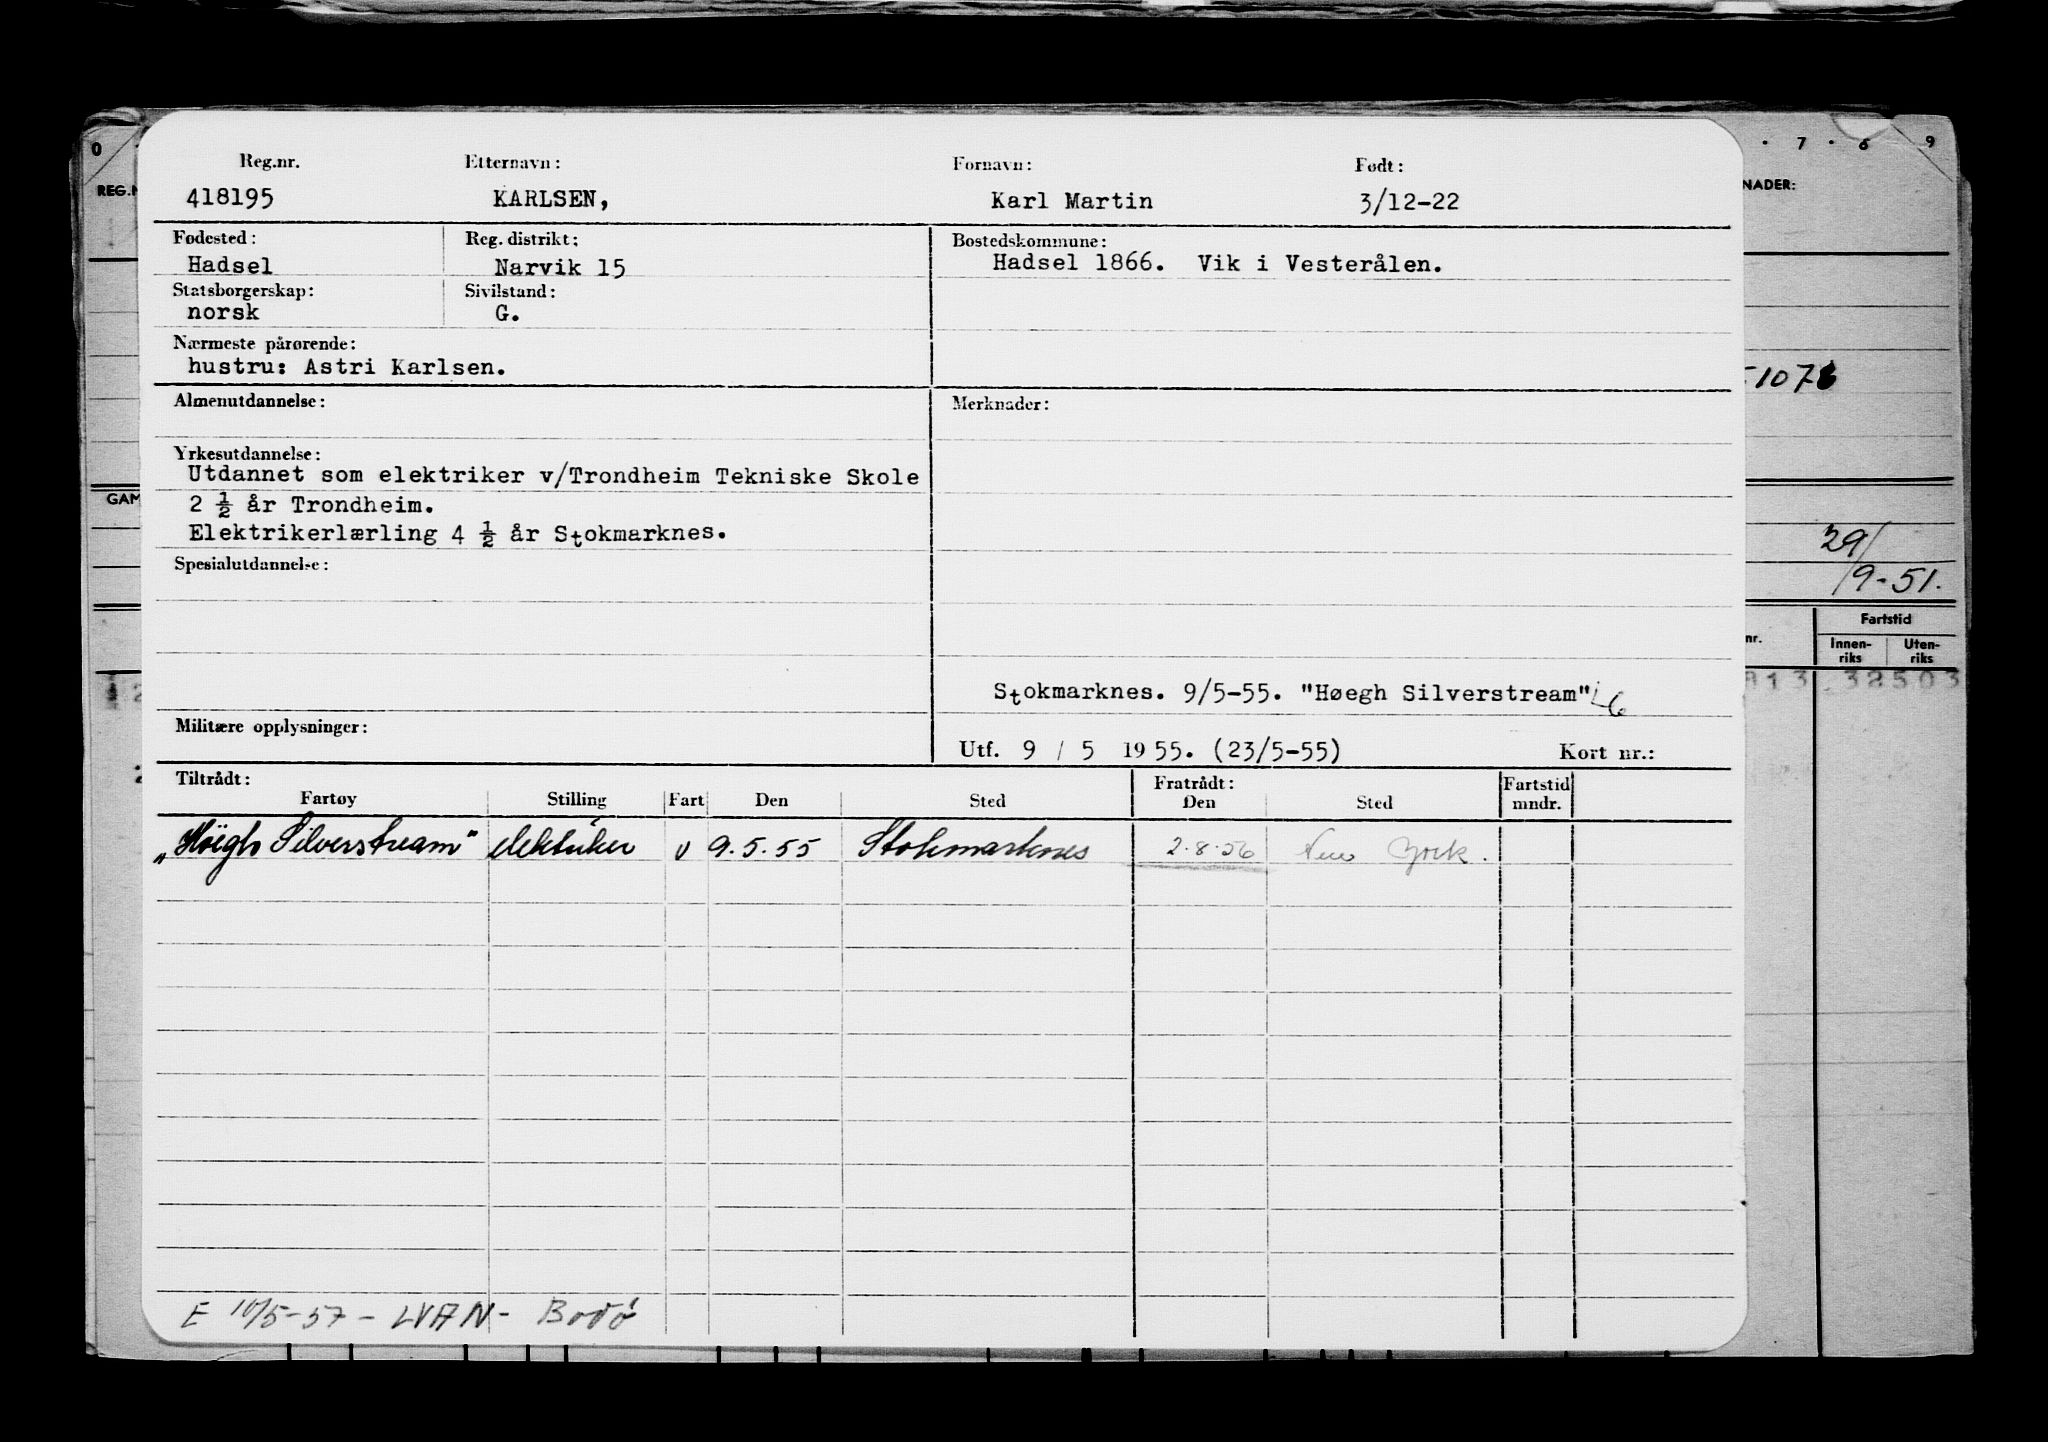 0 · 7 · 8 9
Reg.nr. Etternavn: Fornavn: Født:
REG.N NADER:
418195 KARLSEN, Karl Martin 3/12-22
Fødested: Reg. distrikt: Bostedskommune:
Hadsel Narvik 15 Hadsel 1866. Vik i Vesterålen.
Statsborgerskap: Sivilstand:
norsk G.
Nærmeste pårørende:
hustru: Astri Karlsen.
Almenutdannelse: Merknader:
Yrkesutdannelse:
Utdannet som elektriker v/Trondheim Tekniske Skole
GAM
2 ½ år Trondheim.
Elektrikerlærling 4 ½ år Stokmarknes.
29/
9-51.
Spesialutdannelse:
Fartstid
nr. Innen-riks Uten-riks
Stokmarknes. 9/5-55. "Høegh Silverstream"
913 32503
Militære opplysninger:
Utf. 9 / 5 1955. (23/5-55) Kort nr.:
Tiltrådt: Fratrådt: Fartstid
Fartøy Stilling Fart Den Sted Den Sted mndr.
„Høigh Silverstream" elektriker v 9.5.55 Stokmarknes 2.8.56 New York.
E 10/5-57 - LVAN - Bodø